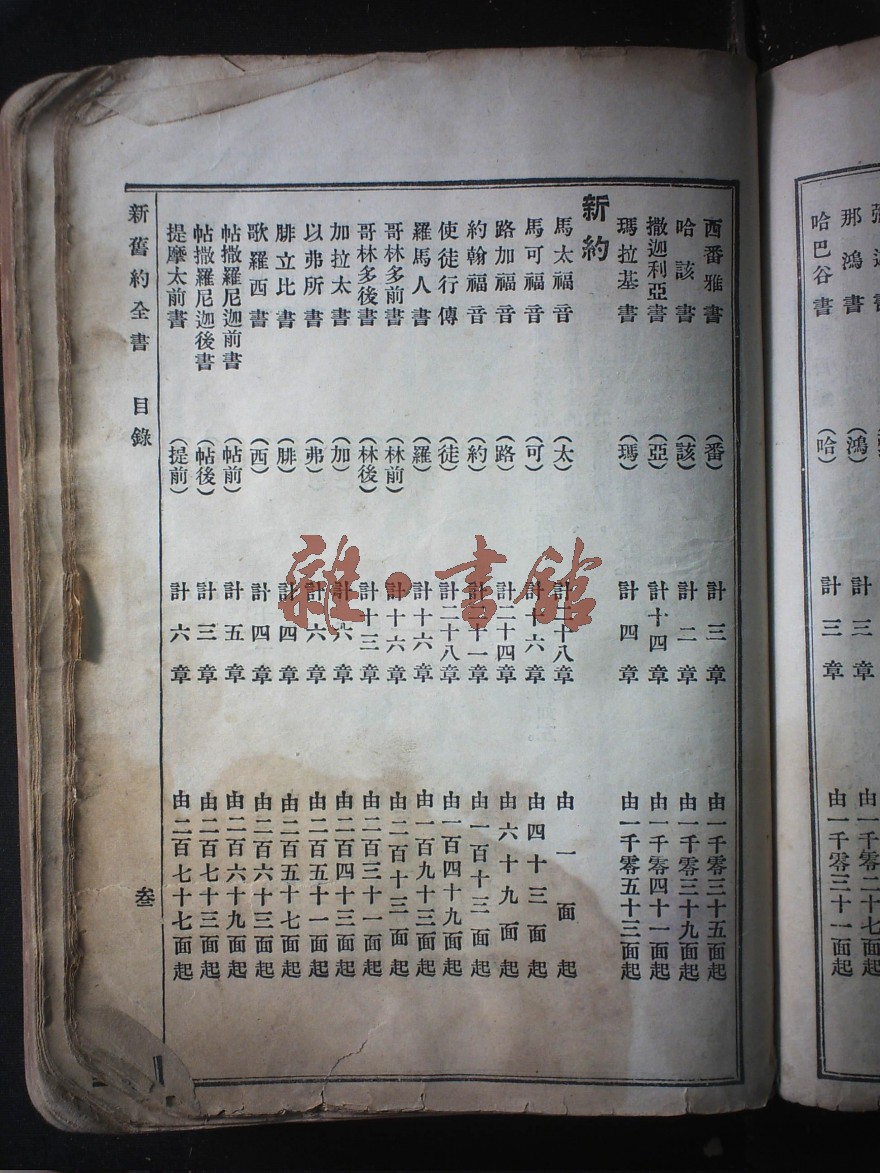 張迦書
那鴻書（鴻）計三章由一千零二十七面起
哈巴谷書（哈）計三章由一千零三十一面起
西番雅書（番）計三章由一千零三十五面起
哈該書（該）計二章由一千零三十九面起
撒迦利亞書（亞）計十四章由一千零四十一面起
瑪拉基書（瑪）計四章由一千零五十三面起
新約
馬太福音（太）計二十八章由一面起
馬可福音（可）計十六章由四十三面起
路加福音（路）計二十四章由六十九面起
約翰福音（約）計二十一章由一百十三面起
使徒行傳（徒）計二十八章由一百四十九面起
羅馬人書（羅）計十六章由一百九十三面起
哥林多前書（林前）計十六章由二百十三面起
哥林多後書（林後）計十三章由二百三十一面起
加拉太書（加）計六章由二百四十三面起
以弗所書（弗）計六章由二百五十一面起
腓立比書（腓）計四章由二百五十七面起
歌羅西書（西）計四章由二百六十三面起
帖撒羅尼迦前書（帖前）計五章由二百六十九面起
帖撒羅尼迦後書（帖後）計三章由二百七十三面起
提摩太前書（提前）計六章由二百七十七面起
新舊約全書 目錄 叄
雜·書館